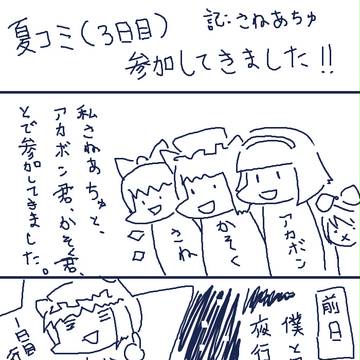 夏コミ(3日目)
記:さねあちゅ
参加してきました!!
私さねあちゅと、
アカボン君、かそく君、
とで参加してきました。
さね
かそく
アカボン
前日
僕と
夜行
1日目